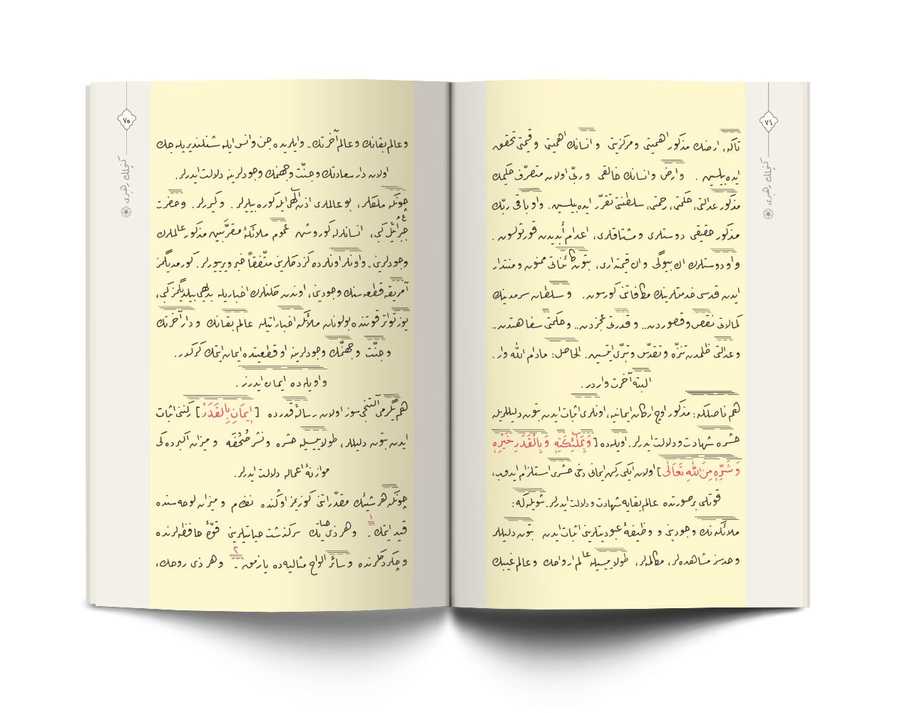 ٧٤
كنجلك رهبرى
تاكه، ارضڭ مذكور اهميتى و مركزيتى و انسانڭ اهميتى و قيمتى تحقق
ايده بيلسين. و ارض و انسانڭ خالقى و ربى اولان متصرّف حكيمڭ
مذكور عدالتى، حكمتى، رحمتى، سلطنتى تقرّر ايده بيلسين. و او باقى ربّڭ
مذكور حقيقى دوستلرى و مشتاقلرى، اعدام أبديدن قورتولسون.
و او دوستلرڭ اڭ بيوگى و اڭ قيمتدارى، بتون كائناتى ممنون و منتدار
ايدن قدسى خدمتلرينڭ مكافاتنى كورسون. و سلطان سرمدينڭ
كمالاتى نقص و قصوردن.. و قدرتى عجزدن.. و حكمتى سفاهتدن..
و عدالتى ظلمدن تنزّه و تقدّس و تبرّى ايتسين. الحاصل: مادام اللّٰه وار..
البته آخرت واردر.
هم ناصلكه: مذكور اوچ اركان ايمانيه، اونلرى اثبات ايدن بتون دليللريله
حشره شهادت و دلالت ايدرلر. اويله ده [وَبِمَلٰئِكَتِهِ وَبِالْقَدَرِ خَيْرِهِ
وَشَرِّهِ مِنَ اللّٰهِ تَعَالٰى] اولان ايكى ركن ايمانى دخى حشرى استلزام ايدوب،
قوتلى بر صورتده عالم بقايه شهادت و دلالت ايدرلر. شويله كه:
ملائكه نڭ وجودينى و وظيفۀ عبوديتلرينى اثبات ايدن بتون دليللر
و حدسز مشاهده لر، مكالمه لر، طولاييسيله عالم ارواحڭ و عالم غيبڭ
٧٥
كنجلك رهبرى
و عالم بقانڭ و عالم آخرتڭ.. و ايلريده جن و انس ايله شنلنديريله جك
اولان دار سعادتڭ و جنّت و جهنّمڭ وجودلرينه دلالت ايدرلر.
چونكه ملكلر، بو عالملرى اذن الٰهى ايله كوره بيليرلر. و كيررلر. و حضرت
جبرائيل كبى، انسانلرله كوروشن عموم ملائكۀ مقرّبين مذكور عالملرڭ
وجودلرينى.. و اونلر اونلرده كزدكلرينى متّفقاً خبر ويريورلر. كورمديگمز
آمريقه قطعه سنڭ وجودينى، اوندن كلنلرڭ اخباريله بديهى بيلديگمز كبى،
يوز تواتر قوتنده بولونان ملائكه اخباراتيله عالم بقانڭ و دار آخرتڭ
و جنّت و جهنّمڭ وجودلرينه او قطعيتده ايمان ايتمك كركدر.
و اويله ده ايمان ايدرز.
هم يگرمى آلتنجى سوز اولان رسالۀ قدرده [ايمانِ بِالْقَدَرْ] ركنى اثبات
ايدن بتون دليللر، طولاييسيله حشره و نشر صحفه و ميزان اكبرده كى
موازنۀ اعماله دلالت ايدرلر.
چونكه هر شيئڭ مقدّراتنى كوزمز اوگنده نظم و ميزان لوحه سنده
قيد ايتمك ١. و هر ذى حياتڭ سركذشت حياتيلرينى قوۀ حافظه لرنده
و چكردكلرنده و سائر الواح مثاليه ده يازمق ٢. و هر ذى روحڭ،